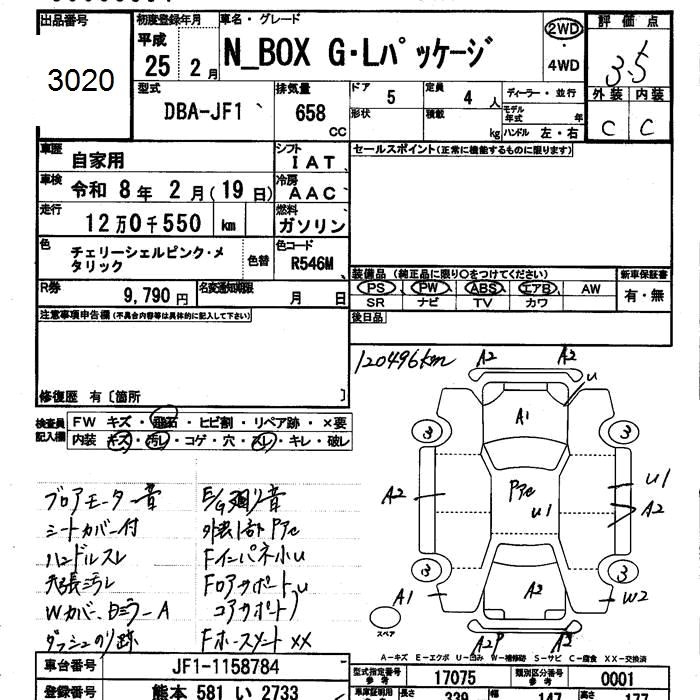 出品番号
3020
初度登録年月
平成
25 2月
車名・グレード
N_BOX G・Lパッケージ
2WD
4WD
評価点
3.5
外装 内装
C C
型式
DBA-JF1
排気量
658
CC
ドア
5
定員
4人
形状
積載
kg
ディーラー・並行
モデル年式 年
ハンドル 左・右
車歴
自家用
シフト
IAT
車検
令和 8年 2月(19日)
冷房
AAC
走行
12万0千550 km
燃料
ガソリン
色
チェリーシェルピンク・メタリック
色替
色コード
R546M
R券
9,790円
名変通知期限
月 日
セールスポイント(正常に機能するものに限ります)
装備品(純正品に限り○をつけてください)
PS PW ABS エアB AW
SR ナビ TV カワ
新車保証書
有・無
後日品
注意事項申告欄(不具合内容等は具体的に記入して下さい)
修復歴 有〔箇所 〕
検査員記入欄
FW キズ・飛石・ヒビ割・リペア跡・×要
内装 キズ・汚れ・コゲ・穴・スレ・キレ・破レ
120496km
A2 A2
u
A1
3 3
A2
Pアセ
u1
u1
A2
3 3
A1
A2
W2
スペア
A2P A2
ブロアモーター音
シートカバー付
ハンドルスレ
天張汚レ
Wカバー、ミラーA
ダッシュのり跡
E/G廻り音
外装1部Pアセ
Fインパネ小u
Fロアサポートu
コアサポート
FホースメントXX
A－キズ E－エクボ U－凹み W－補修跡 S－サビ C－腐食 XX－交換済
車台番号
JF1-1158784
登録番号
熊本 581 い 2733
型式指定番号 参考
17075
類別区分番号 参考
0001
長さ
339
幅
147
高さ
177